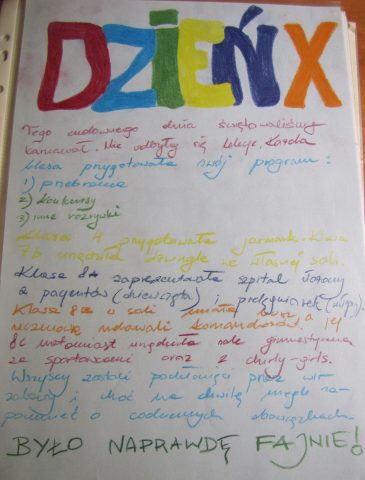 DZIEŃ X
Tego cudownego dnia świętowaliśmy
karnawał. Nie odbyły się lekcje. Każda
klasa przygotowała swój program:
1) przebrania
2) konkursy
3) inne rozrywki
Klasa 7A przygotowała jarmark. Klasa
7b urządziła dżunglę we własnej sali.
Klasa 8A zaprezentowała szpital złożony
z pacjentów (dziewczęta) i pielęgniarek
Klasa 8 w sali
uczniowie udawali komandosów.
8c natomiast urządziła salę gimnastyczną
ze sportowcami oraz z chirly-girls.
Wszyscy zostali pochłonięci przez wir
zabawy i choć na chwilę mogli za-
pomnieć o codziennych obowiązkach.
BYŁO NAPRAWDĘ FAJNIE!